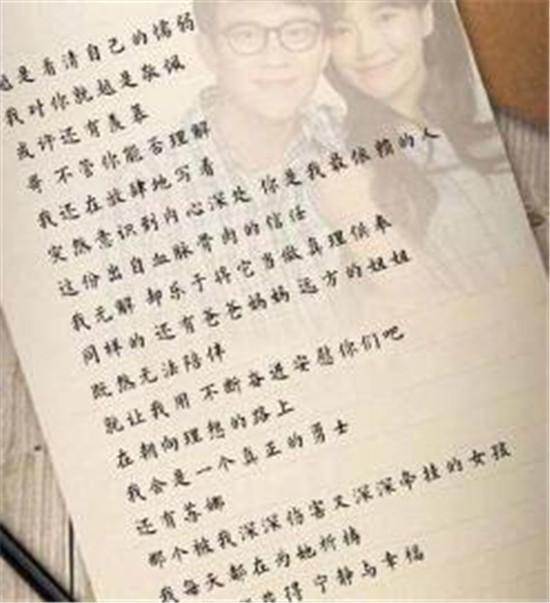 是看清自己的懦弱
我对你就越是敬佩
或许还有羡慕
哥 不管你能否理解
我还在放肆地写着
突然意识到内心深处 你是我最依赖的人
这份出自血脉骨肉的信任
我无解 却乐于将它当做真理供奉
同样的 还有爸爸妈妈 远方的妞妞
既然无法陪伴
就让我用 不断奋进安慰你们吧
在朝向理想的路上
我会是一个真正的勇士
还有苏娜
那个被我深深伤害又深深牵挂的女孩
我每天都在为她祈祷
获得 宁静与幸福